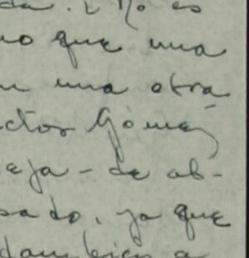 da. ¿No es
no que una
n una otra
ctor Gómez
eja - de ab-
sado, ya que
también a